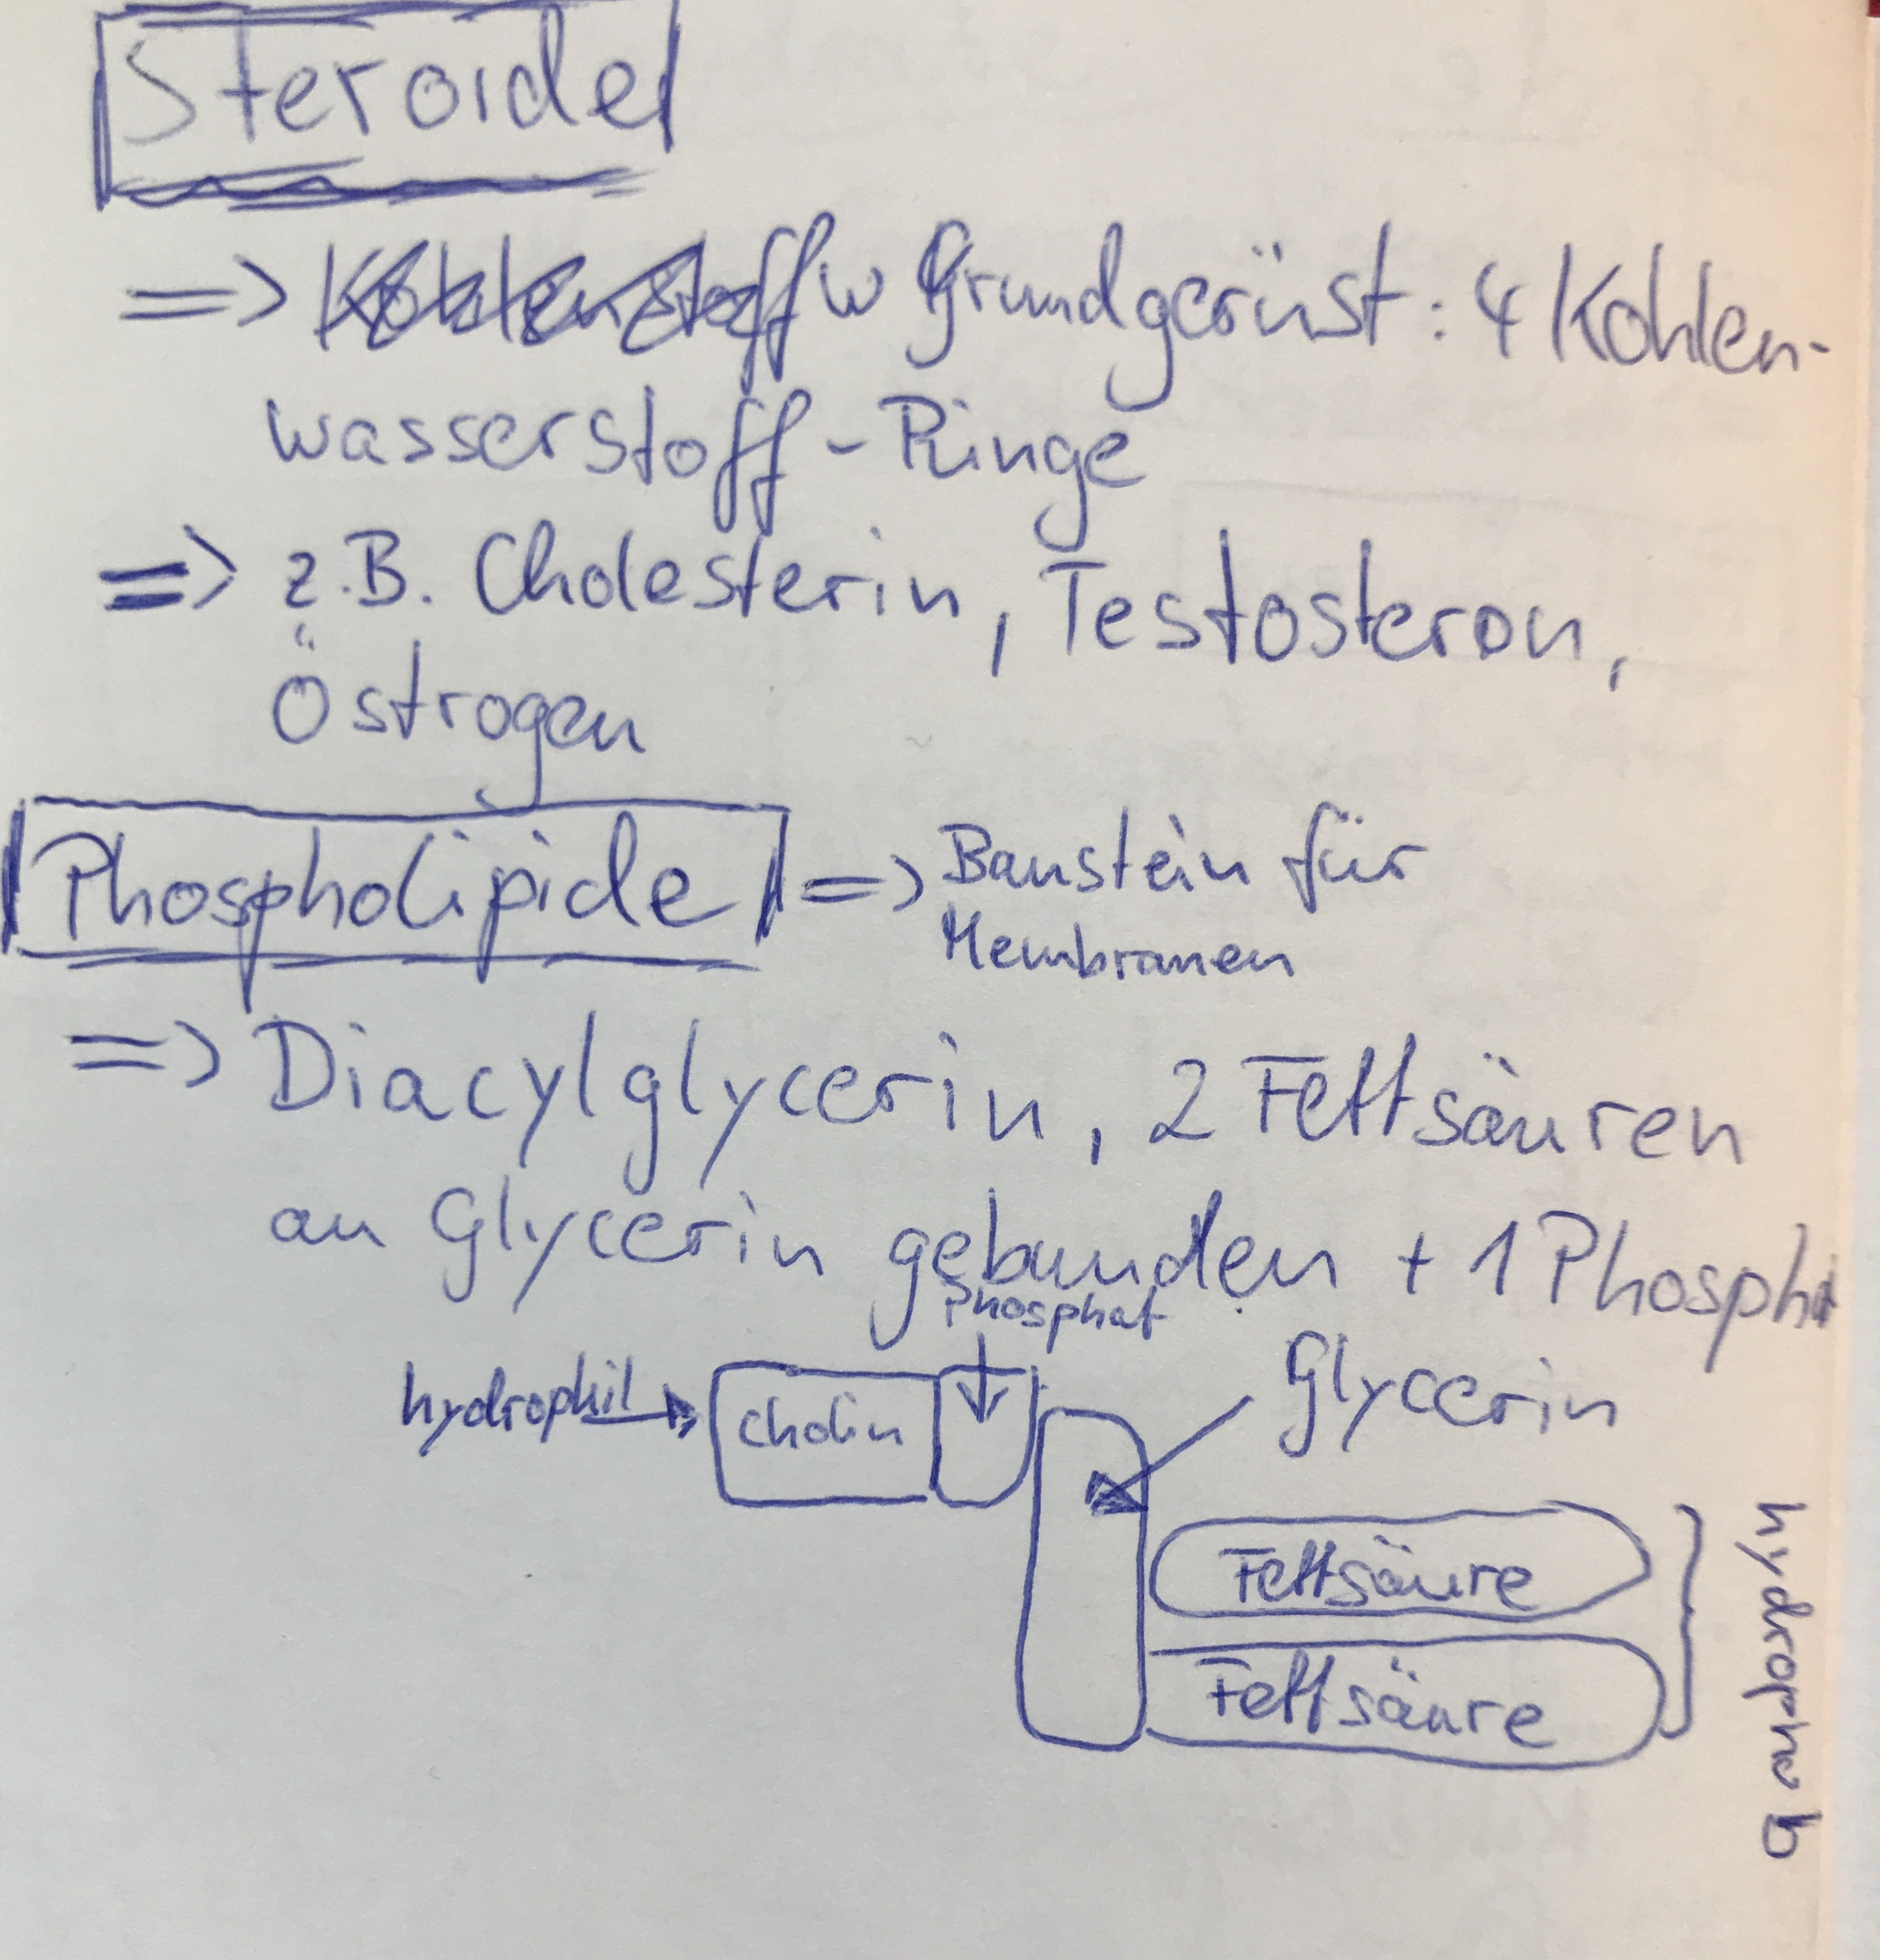 Steroide
=> Grundgerüst: 4 Kohlen-
wasserstoff-Ringe
=> z.B. Cholesterin, Testosteron,
Östrogen
Phospholipide => Baustein für
Membranen
=> Diacylglycerin, 2 Fettsäuren
an Glycerin gebunden + 1
Phosphat
Glycerin
hydrophil
Cholin
Fettsäure
Fettsäure
hydrophob